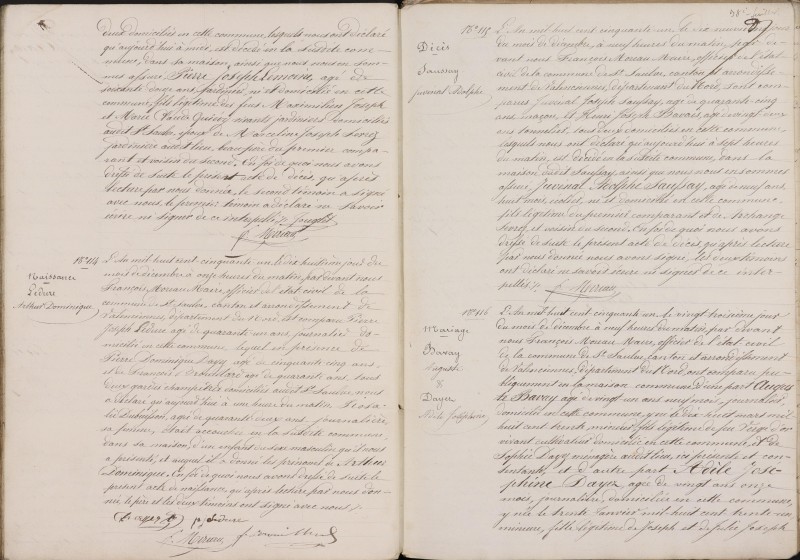 deux domiciliés en cette commune, lesquels nous ont déclaré
qu'aujourd'hui à midi, est décédé en la susdite com-
mune, dans sa maison, ainsi que nous nous en som-
mes assuré, Pierre Joseph Lemoine, agé de
soixante deux ans, jardinier, né et domicilié en cette
commune, fils légitime des feus Maximilien Joseph
et Marie vivants jardiniers domiciliés
audit St Saulve, époux de Marceline Joseph
jardinière audit lieu, beau père du premier compa-
rant et voisin du second. En foi de quoi nous avons
dressé de suite le présent acte de décès, qu'après
lecture par nous donnée, le second témoin a signé
avec nous, le premier témoin a déclaré ne savoir
écrire ni signer de ce interpellé
F. Moreau
No 114
Naissance
Ledure
Arthur Dominique
L'An mil huit cent cinquante un le dix huitième jour du
mois de décembre à onze heures du matin, par devant nous
François Moreau Maire, officier de l'état civil de la
commune de St Saulve, canton et arrondissement de
Valenciennes, département du Nord, est comparu Pierre
Joseph Ledure agé de quarante un ans, journalier do-
micilié en cette commune, lequel en présence de
Pierre Dominique Dayez agé de cinquante cinq ans,
et de François agé de quarante ans, tous
deux gardes champêtres domiciliés audit St Saulve, nous
a déclaré qu'aujourd'hui à une heure du matin,
Dubuisson, agée de quarante deux ans, journalière,
sa femme, était accouchée en la susdite commune
dans sa maison, d'un enfant du sexe masculin qu'il nous
a présenté, et auquel il a donné les prénoms de Arthur
Dominique. En foi de quoi nous avons dressé de suite le
présent acte de naissance qu'après lecture par nous don-
née, le père et les deux témoins ont signé avec nous
Dayez p. Ledure
F. Moreau
No 115
Décès
Saussay
Juvénal Adolphe
L'An mil huit cent cinquante un le dix neuvième jour
du mois de décembre, à neuf heures du matin, par de-
vant nous François Moreau Maire, officier de l'état
civil de la commune de St Saulve, canton et arrondisse-
ment de Valenciennes, département du Nord, sont com-
parus Juvénal Joseph Saussay, agé de quarante cinq
ans, maçon, et Henri Joseph Bavais, agé de vingt deux
ans tonnelier, tous deux domiciliés en cette commune,
lesquels nous ont déclaré qu'aujourd'hui à sept heures
du matin, est décédé en la susdite commune, dans la
maison dudit Saussay, ainsi que nous nous en sommes
assuré, Juvénal Adolphe Saussay, agé de neuf ans
huit mois, écolier, né et domicilié en cette commune
fils légitime du premier comparant et de Archange
et voisin du second. En foi de quoi nous avons
dressé de suite le présent acte de décès qu'après lecture
par nous donnée nous avons signé, les deux témoins
ont déclaré ne savoir écrire ni signer de ce inter-
pellés
F. Moreau
No 116
Mariage
Bavay
Auguste
&
Dayez
Adèle Joséphine
L'An mil huit cent cinquante un le vingt troisième jour
du mois de décembre à neuf heures du matin, par devant
nous François Moreau Maire, officier de l'état civil
de la commune de St Saulve canton et arrondissement
de Valenciennes, département du Nord, ont comparu pu-
bliquement en la maison commune, d'une part Augus-
te Bavay agé de vingt un ans neuf mois, journalier
domicilié en cette commune, y né le dix huit mars mil
huit cent trente, mineur, fils légitime de
vivant cultivateur domicilié en cette commune, et de
Sophie Dayez ménagère audit lieu, ici présente et con-
sentante, et d'autre part Adèle José-
phine Dayez, agée de vingt ans onze
mois, journalière, domiciliée en cette commune,
y née le trente janvier mil huit cent trente un
mineure, fille légitime de Joseph et de Joseph